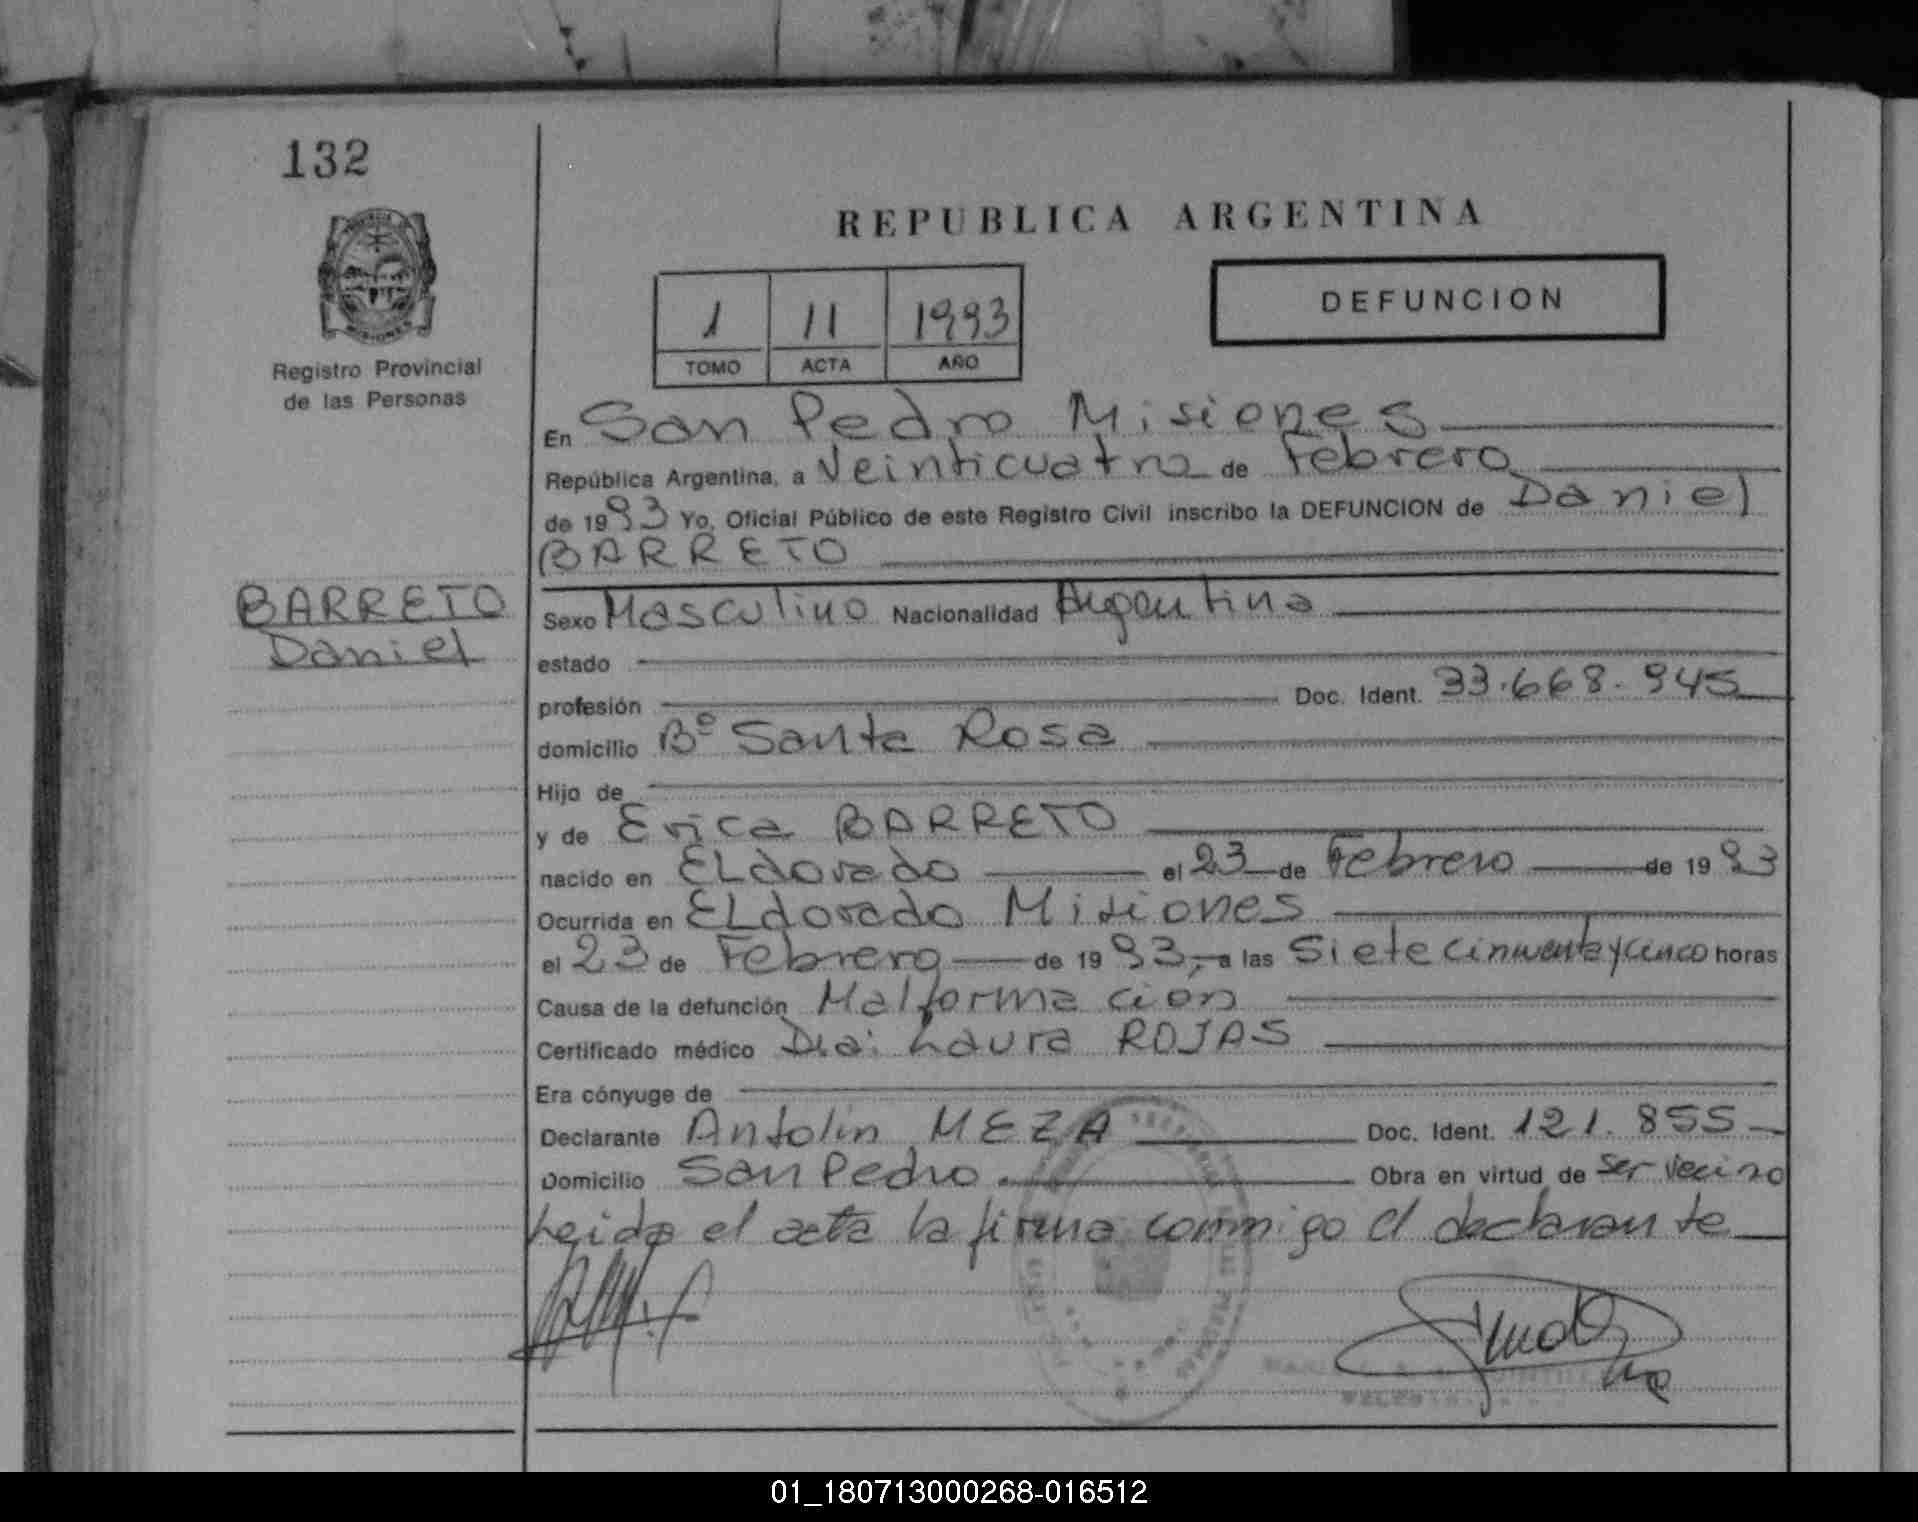 132
REPUBLICA ARGENTINA
1 11 1993
TOMO ACTA AÑO
DEFUNCION
Registro Provincial
de las Personas
En San Pedro Misiones
República Argentina, a Veinticuatro de Febrero
de 1993 Yo, Oficial Público de este Registro Civil inscribo la DEFUNCION de Daniel
BARRETO
BARRETO
Daniel
Sexo Masculino Nacionalidad Argentina
estado
profesión Doc. Ident. 33.668.945
domicilio Bº Santa Rosa
Hijo de
y de Erica BARRETO
nacido en ELdorado el 23 de Febrero de 1993
Ocurrida en ELdorado Misiones
el 23 de Febrero de 1993, a las Siete cincuenta y cinco horas
Causa de la defunción Malformación
Certificado médico Dra. Laura ROJAS
Era cónyuge de
Declarante Antolin MEZA Doc. Ident. 121.855
Domicilio San Pedro. Obra en virtud de ser vecino
Leida el acta la firma conmigo el declarante
01_180713000268-016512